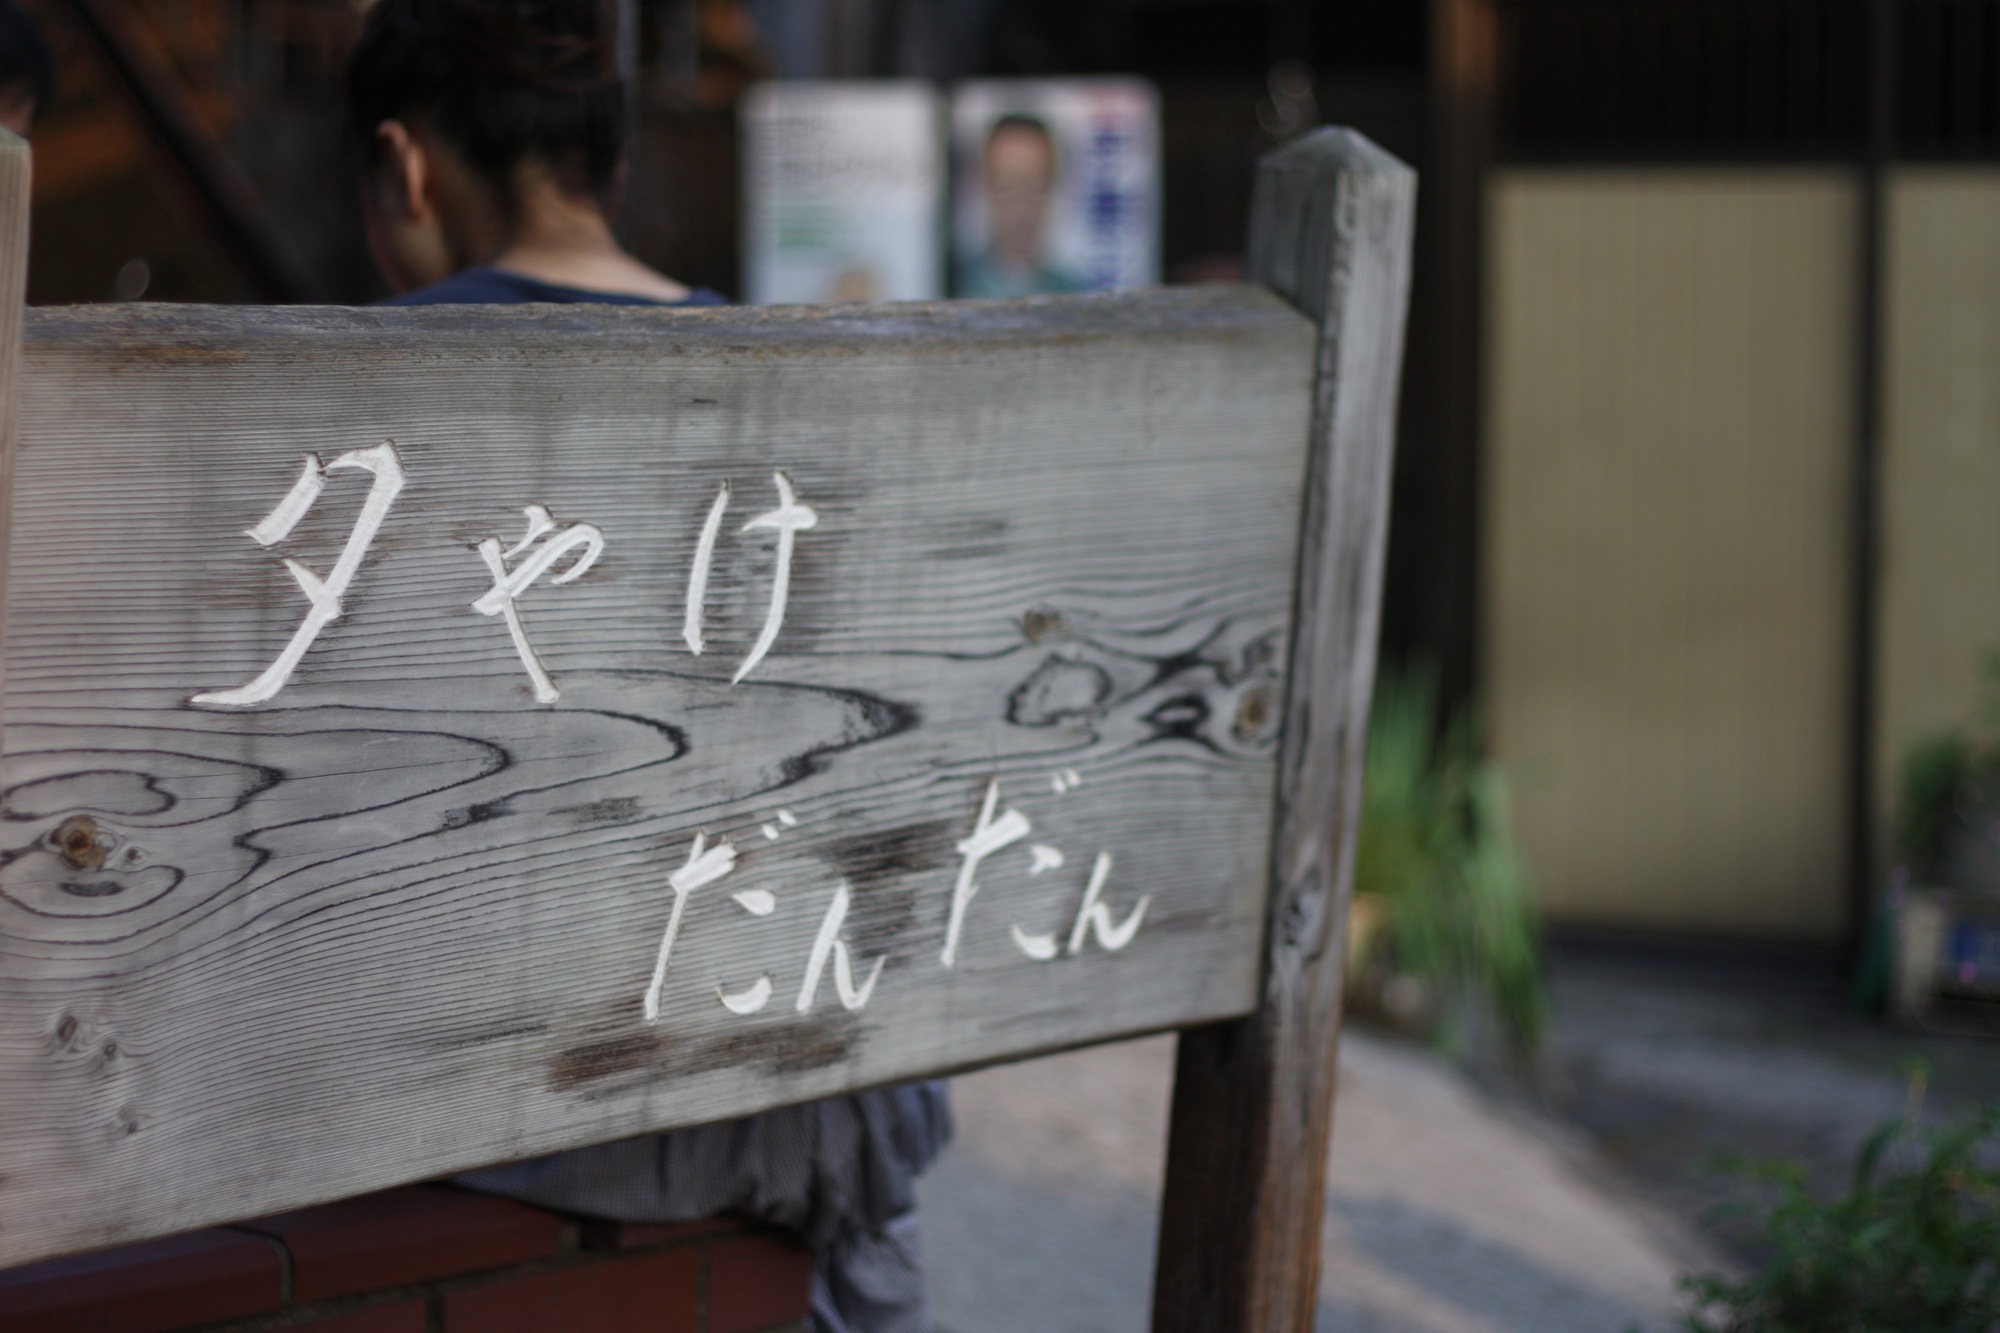 夕やけ
だんだん